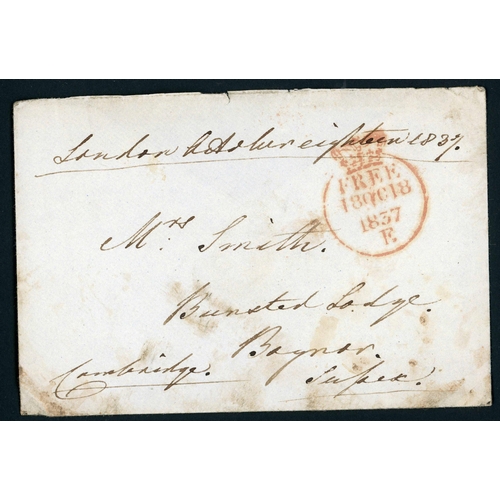 London October eighteen 1837.
FREE
18OC18
1837
E
Mrs. Smith.
Bersted Lodge.
Bognor.
Cambridge. Sussex.